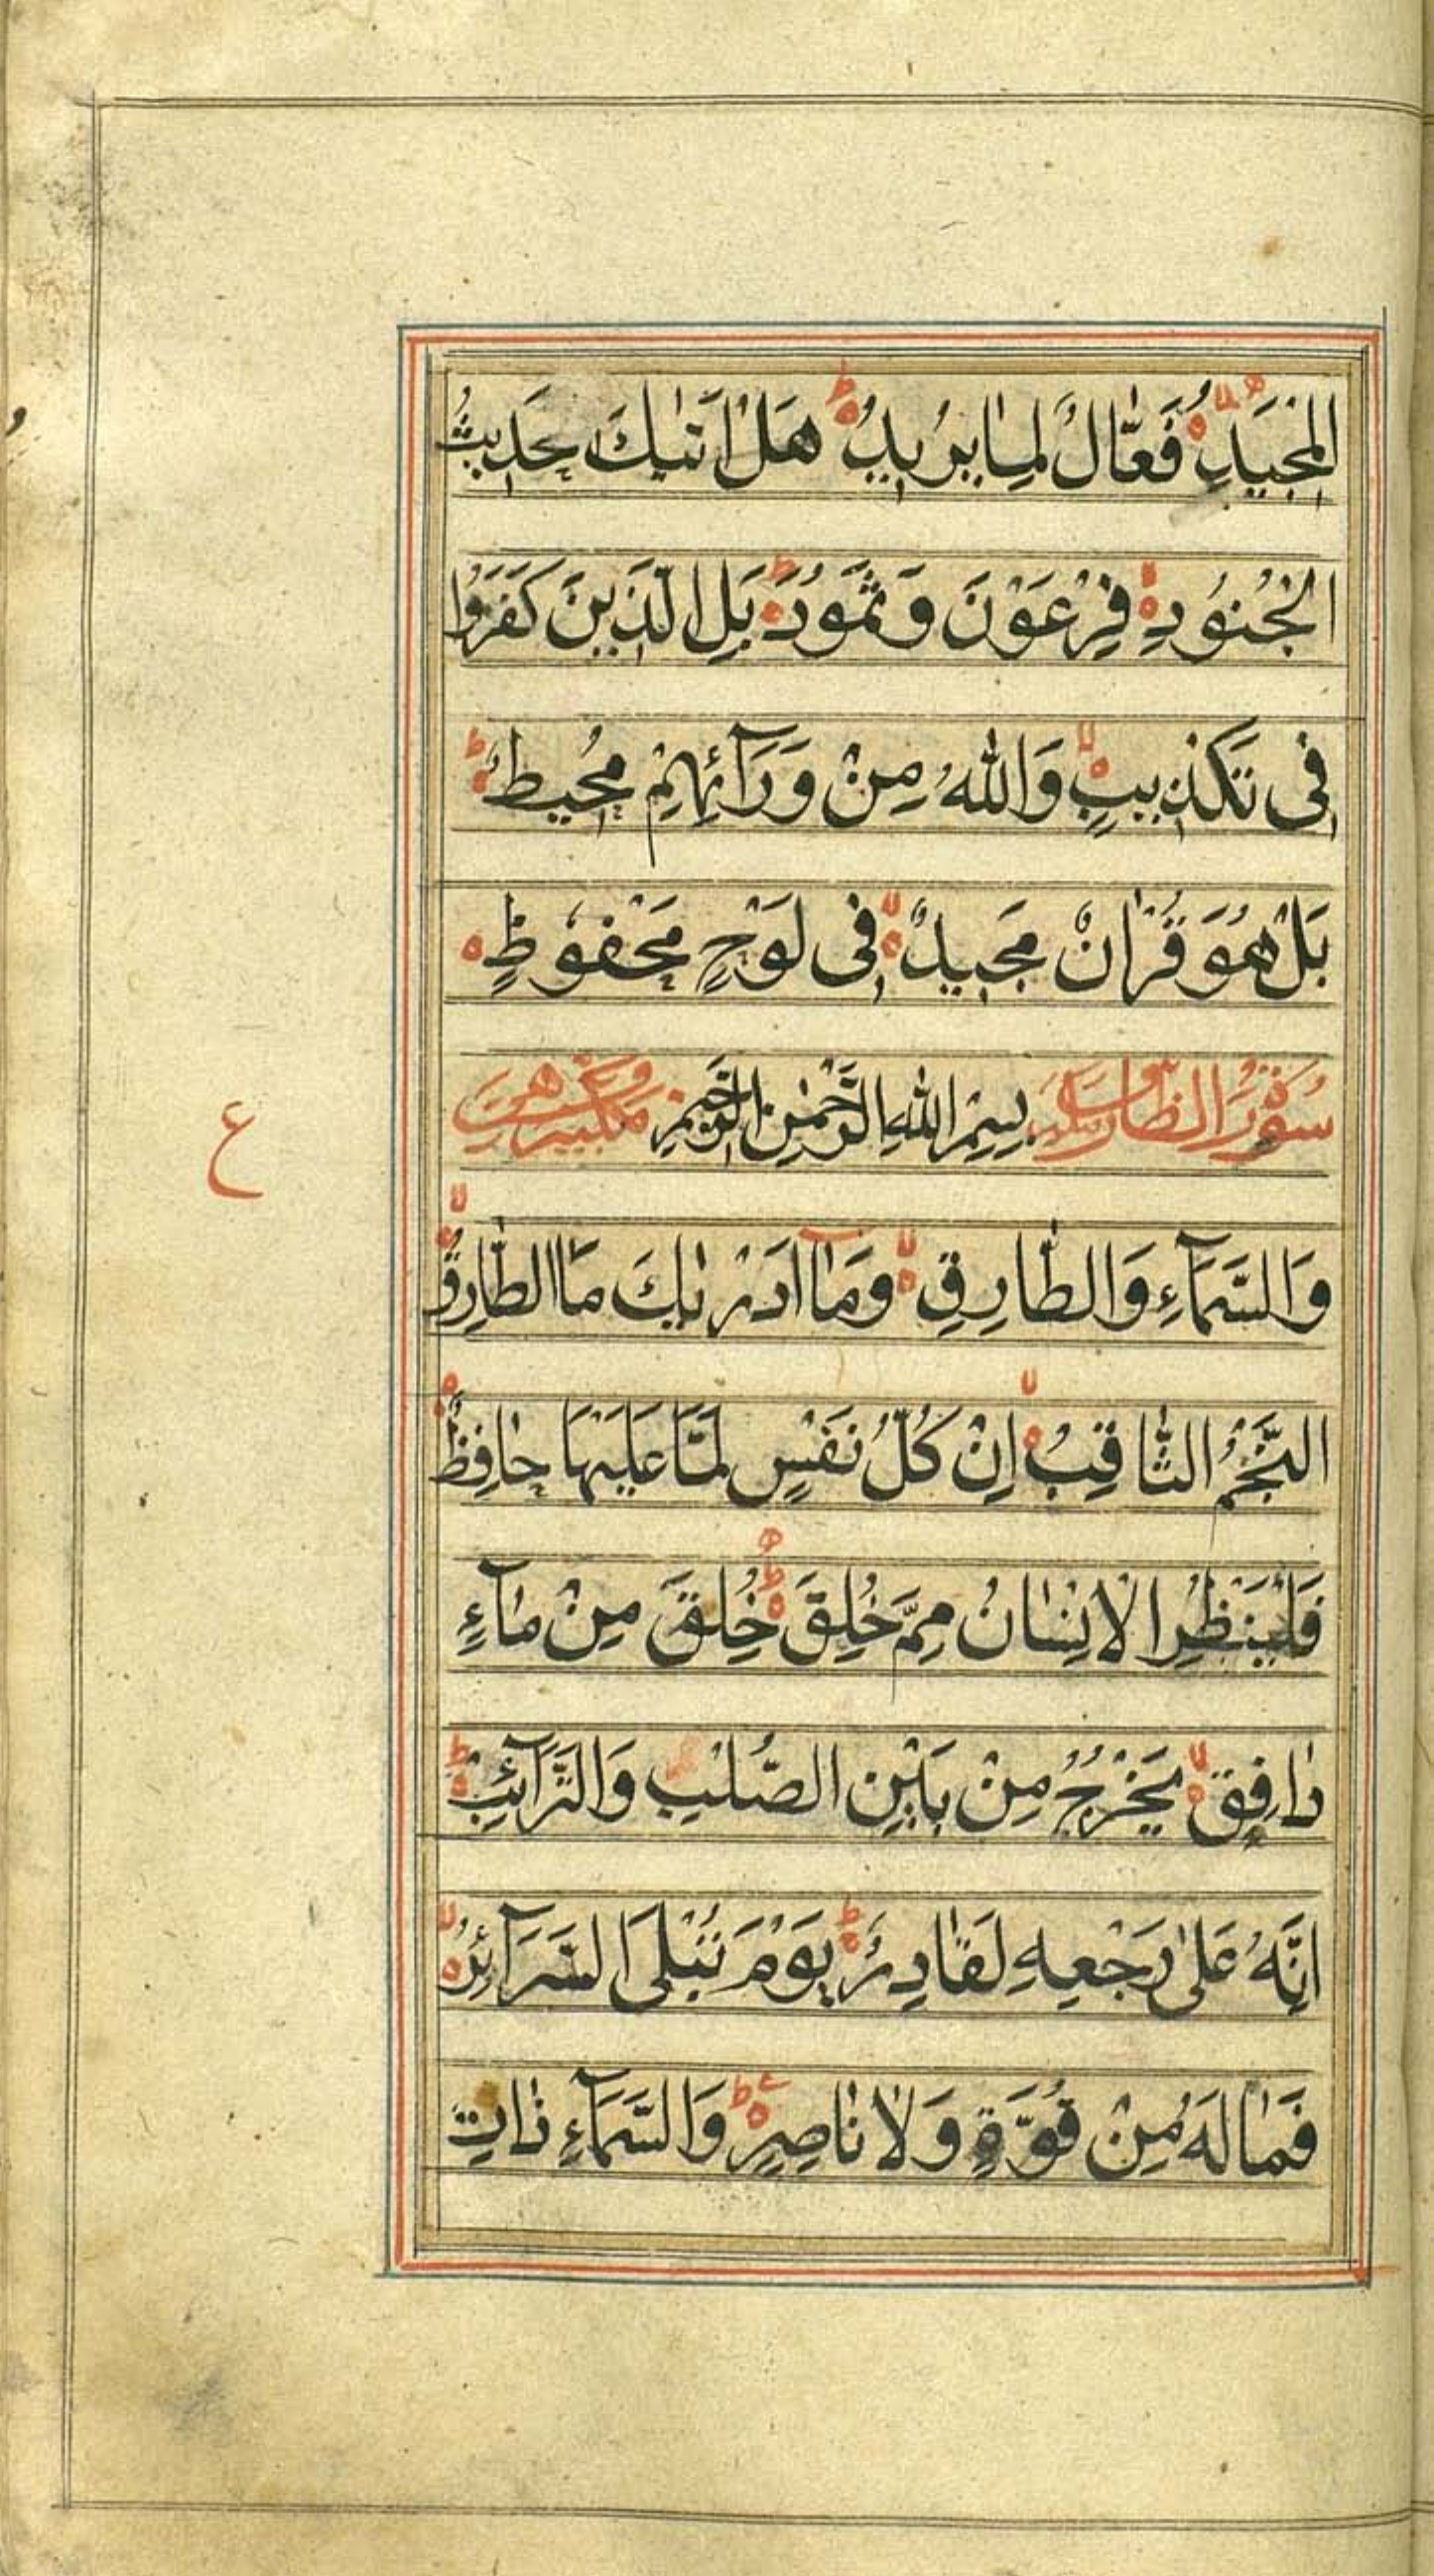 الْمَجِيدِۙ فَعَّالٌ لِمَا يُرِيدُؕ هَلْ اَتٰىكَ حَدِيثُ
الْجُنُودِۙ فِرْعَوْنَ وَثَمُودَؕ بَلِ الَّذِينَ كَفَرُوا
فِى تَكْذِيبٍۙ وَاللّٰهُ مِنْ وَرَآئِهِمْ مُحِيطٌؕ
بَلْ هُوَ قُرْاٰنٌ مَجِيدٌۙ فِى لَوْحٍ مَحْفُوظٍ ه
سورة الطارق بِسْمِ اللّٰهِ الرَّحْمٰنِ الرَّحِيمِ
ع
وَالسَّمَآءِ وَالطَّارِقِۙ وَمَآ اَدْرٰىكَ مَا الطَّارِقُۙ
النَّجْمُ الثَّاقِبُۙ اِنْ كُلُّ نَفْسٍ لَمَّا عَلَيْهَا حَافِظٌؕ
فَلْيَنْظُرِ الْاِنْسَانُ مِمَّ خُلِقَؕ خُلِقَ مِنْ مَآءٍ
دَافِقٍۙ يَخْرُجُ مِنْ بَيْنِ الصُّلْبِ وَالتَّرَآئِبِؕ
اِنَّهُ عَلٰى رَجْعِهِ لَقَادِرٌؕ يَوْمَ تُبْلَى السَّرَآئِرُۙ
فَمَا لَهُ مِنْ قُوَّةٍ وَلَا نَاصِرٍؕ وَالسَّمَآءِ ذَاتِ